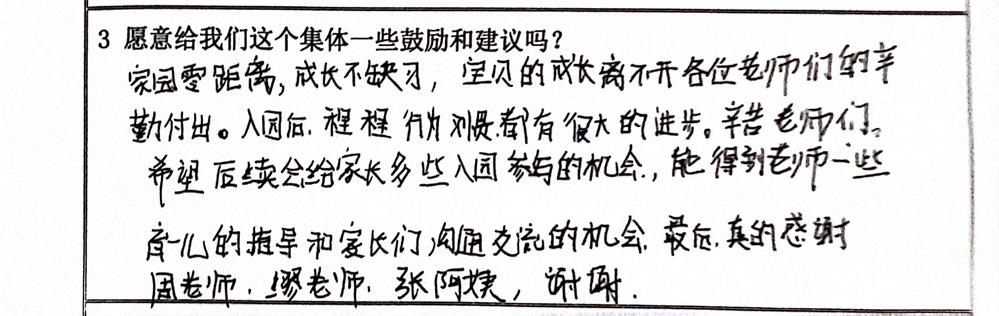 3 愿意给我们这个集体一些鼓励和建议吗？
家园零距离，成长不缺习，宝贝的成长离不开各位老师们的辛
勤付出。入园后，程程行为习惯都有很大的进步。辛苦老师们。
希望后续会给家长多些入园参与的机会，能得到老师一些
育儿的指导和家长们沟通交流的机会，最后，真的感谢
周老师、缪老师、张阿姨，谢谢．